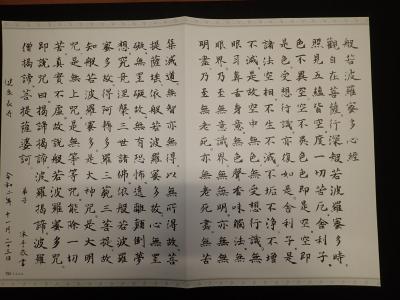 般若波羅蜜多心經
觀自在菩薩行深般若波羅蜜多時
照見五蘊皆空度一切苦厄舍利子
色不異空空不異色色即是空空即
是色受想行識亦復如是舍利子是
諸法空相不生不滅不垢不淨不增
不減是故空中無色無受想行識無
眼耳鼻舌身意無色聲香味觸法無
眼界乃至無意識界無無明亦無無
明盡乃至無老死亦無老死盡無苦
集滅道無智亦無得以無所得故菩
提薩埵依般若波羅蜜多故心無罣
礙無罣礙故無有恐怖遠離顛倒夢
想究竟涅槃三世諸佛依般若波羅
蜜多故得阿耨多羅三藐三菩提故
知般若波羅蜜多是大神咒是大明
咒是無上咒是無等等咒能除一切
苦真實不虛故說般若波羅蜜多咒
即說咒曰揭諦揭諦波羅揭諦波羅
僧揭諦菩提薩婆訶
弟子
令和二年十一月二十三日